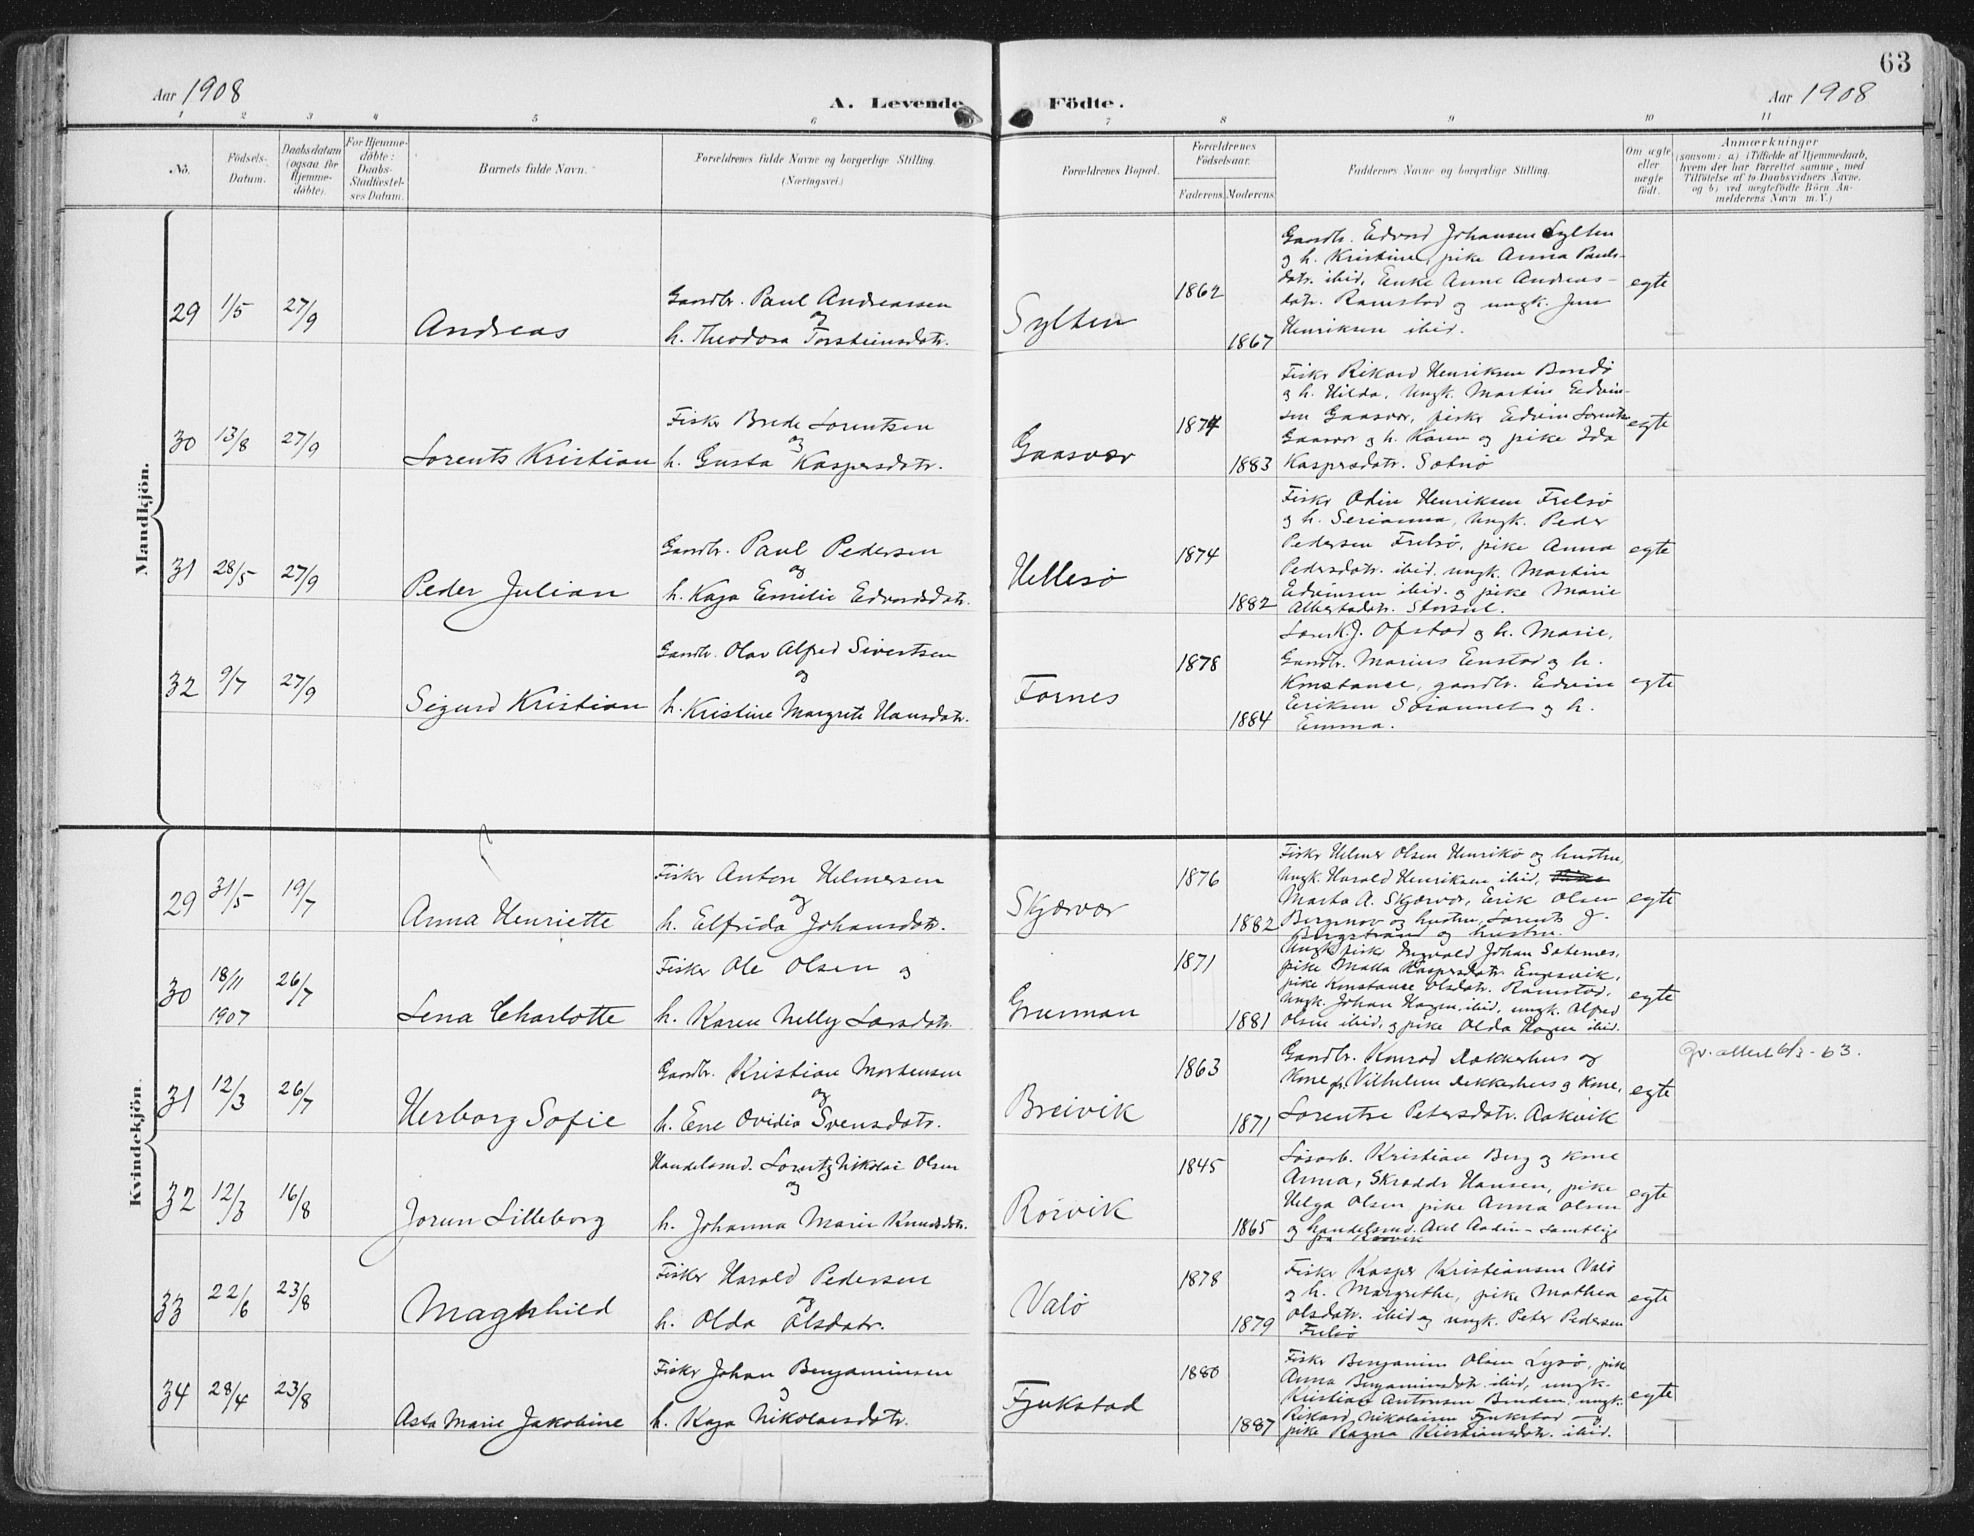 63
Aar 1908
A. Levende Födte.
Aar 1908
1 2 3 4 5 6 7 8 9 10 11
No.
Födsels-
Datum.
Daabsdatum
(ogsaa for
Hjemme-
döbte).
For Hjemme-
döbte:
Daabs-
Stadfæstel-
ses Datum.
Barnets fulde Navn.
Forældrenes fulde Navne og borgerlige Stilling.
(Næringsvei.)
Forældrenes Bopæl.
Forældrenes
Födselsaar.
Faderens. Moderens.
Faddernes Navne og borgerlige Stilling.
Om ægte
eller
uægte
födt.
Anmærkninger
(saasom: a) i Tilfælde af Hjemmedaab,
hvem der har forrettet samme, med
Tilföielse af to Daabsvidners Navne,
og b) ved uægtefödte Börn An-
melderens Navn m. V.)
Mandkjön.
29 1/5 27/9 Andreas
Gaardbr. Paul Andreassen
og
h. Theodora Torsteinsdatr.
Sylten
1862
1867
Gaardbr. Edvard Johansen Sylten
og h. Kristine, pike Anna Pauls-
datr. ibid, Enke Anne Andreas-
datr. Ramstad og ungk. Jens
Henriksen ibid.
egte
30 13/8 27/9 Lorents Kristian
Fisker Brede Lorentsen
og
h. Gusta Kaspersdatr.
Gaasvær
1874
1883
Fisker Rikard Henriksen Bondø
og h. Hilda, ungk. Martin Edvin-
sen Gaasvær, fisker Edvin Lorents.
Gaasvær og h. Karen og pike Ida
Kaspersdatr. Satnø
egte
31 28/5 27/9 Peder Julian
Gaardbr. Paul Pedersen
og
h. Kaja Emilie Edvardsdatr.
Hellesø
1874
1882
Fisker Odin Henriksen Frelsø
og h. Serianna, ungk. Peder
Pedersen Frelsø, pike Anna
Pedersdatr. ibid. ungk. Martin
Edvinsen ibid. og pike Marie
Albertsdatr. Storsul.
egte
32 9/7 27/9 Sigurd Kristian
Gaardbr. Olav Alfred Sivertsen
og
h. Kristine Margrete Hansdatr.
Fornes
1878
1884
Lensm. J. Ofstad og h. Marie,
Gaardbr. Marius Enstad og h.
Konstanse, gaardbr. Edvin
Eriksen Sørannet og h.
Emma.
egte
Kvindekjön.
29 31/5 19/7 Anna Henriette
Fisker Anton Helmersen
og
h. Elfrida Johansdatr.
Skjærvær
1876
1882
Fisker Helmer Olsen Henrikø og hustru,
ungk. Harald Henriksen ibid,
Marta A. Skjærvær, Erik Olsen
og hustru, Lorents J.
Bergstrand og hustru.
egte
30 18/11 1907 26/7 Lena Charlotte
Fisker Ole Olsen og
h. Karen Nelly Larsdatr.
Grunnan
1871
1881
Ungk. fisker Ingvald Johan Saternes,
pike Malla Kaspersdatr. Engesvik,
pike Konstanse Olsdatr. Ramstad,
ungk. Johan Hagen ibid, ungk. Alfred
Olsen ibid. og pike Olda Hagen ibid.
egte
31 12/3 26/7 Herborg Sofie
Gaardbr. Kristian Mortensen
og
h. Ene Ovidia Svensdatr.
Breivik
1863
1871
Gaardbr. Konrad Dakkerhus og
Kone, Vilhelm Dekkerhus og kone,
Lorentse Petersdatr. Aakvik
egte
attest 6/3-63.
32 12/3 16/8 Jorun Lilleborg
Handelsmd. Lorentz Nikolai Olsen
og
h. Johanna Marie Knudsdatr.
Rørvik
1845
1865
Løsarb. Kristian Berg og kone
Anna, Skrædder Hansen, pike
Helga Olsen pike Anna Olsen
og handelsmd. Axel Aadin - samtlige
fra Rørvik
egte
33 22/6 23/8 Magnhild
Fisker Harald Pedersen
og
h. Olda Olsdatr.
Valø
1878
1879
Fisker Kasper Kristiansen Valø
og h. Margrethe, pike Mathea
Olsdatr. ibid og ungk. Peter Pedersen
Frelsø
egte
34 28/4 23/8 Asta Marie Jakobine
Fisker Johan Benjaminsen
og
h. Kaja Nikolaisdatr.
Fjukstad
1880
1887
Fisker Benjamin Olsen Lysø, pike
Anna Benjaminsdatr. ibid, ungk.
Kristian Antonsen Binden, ungk.
Rikard Nikolaisen Fjukstad og
pike Ragna Kristiansdatr. ibid.
egte